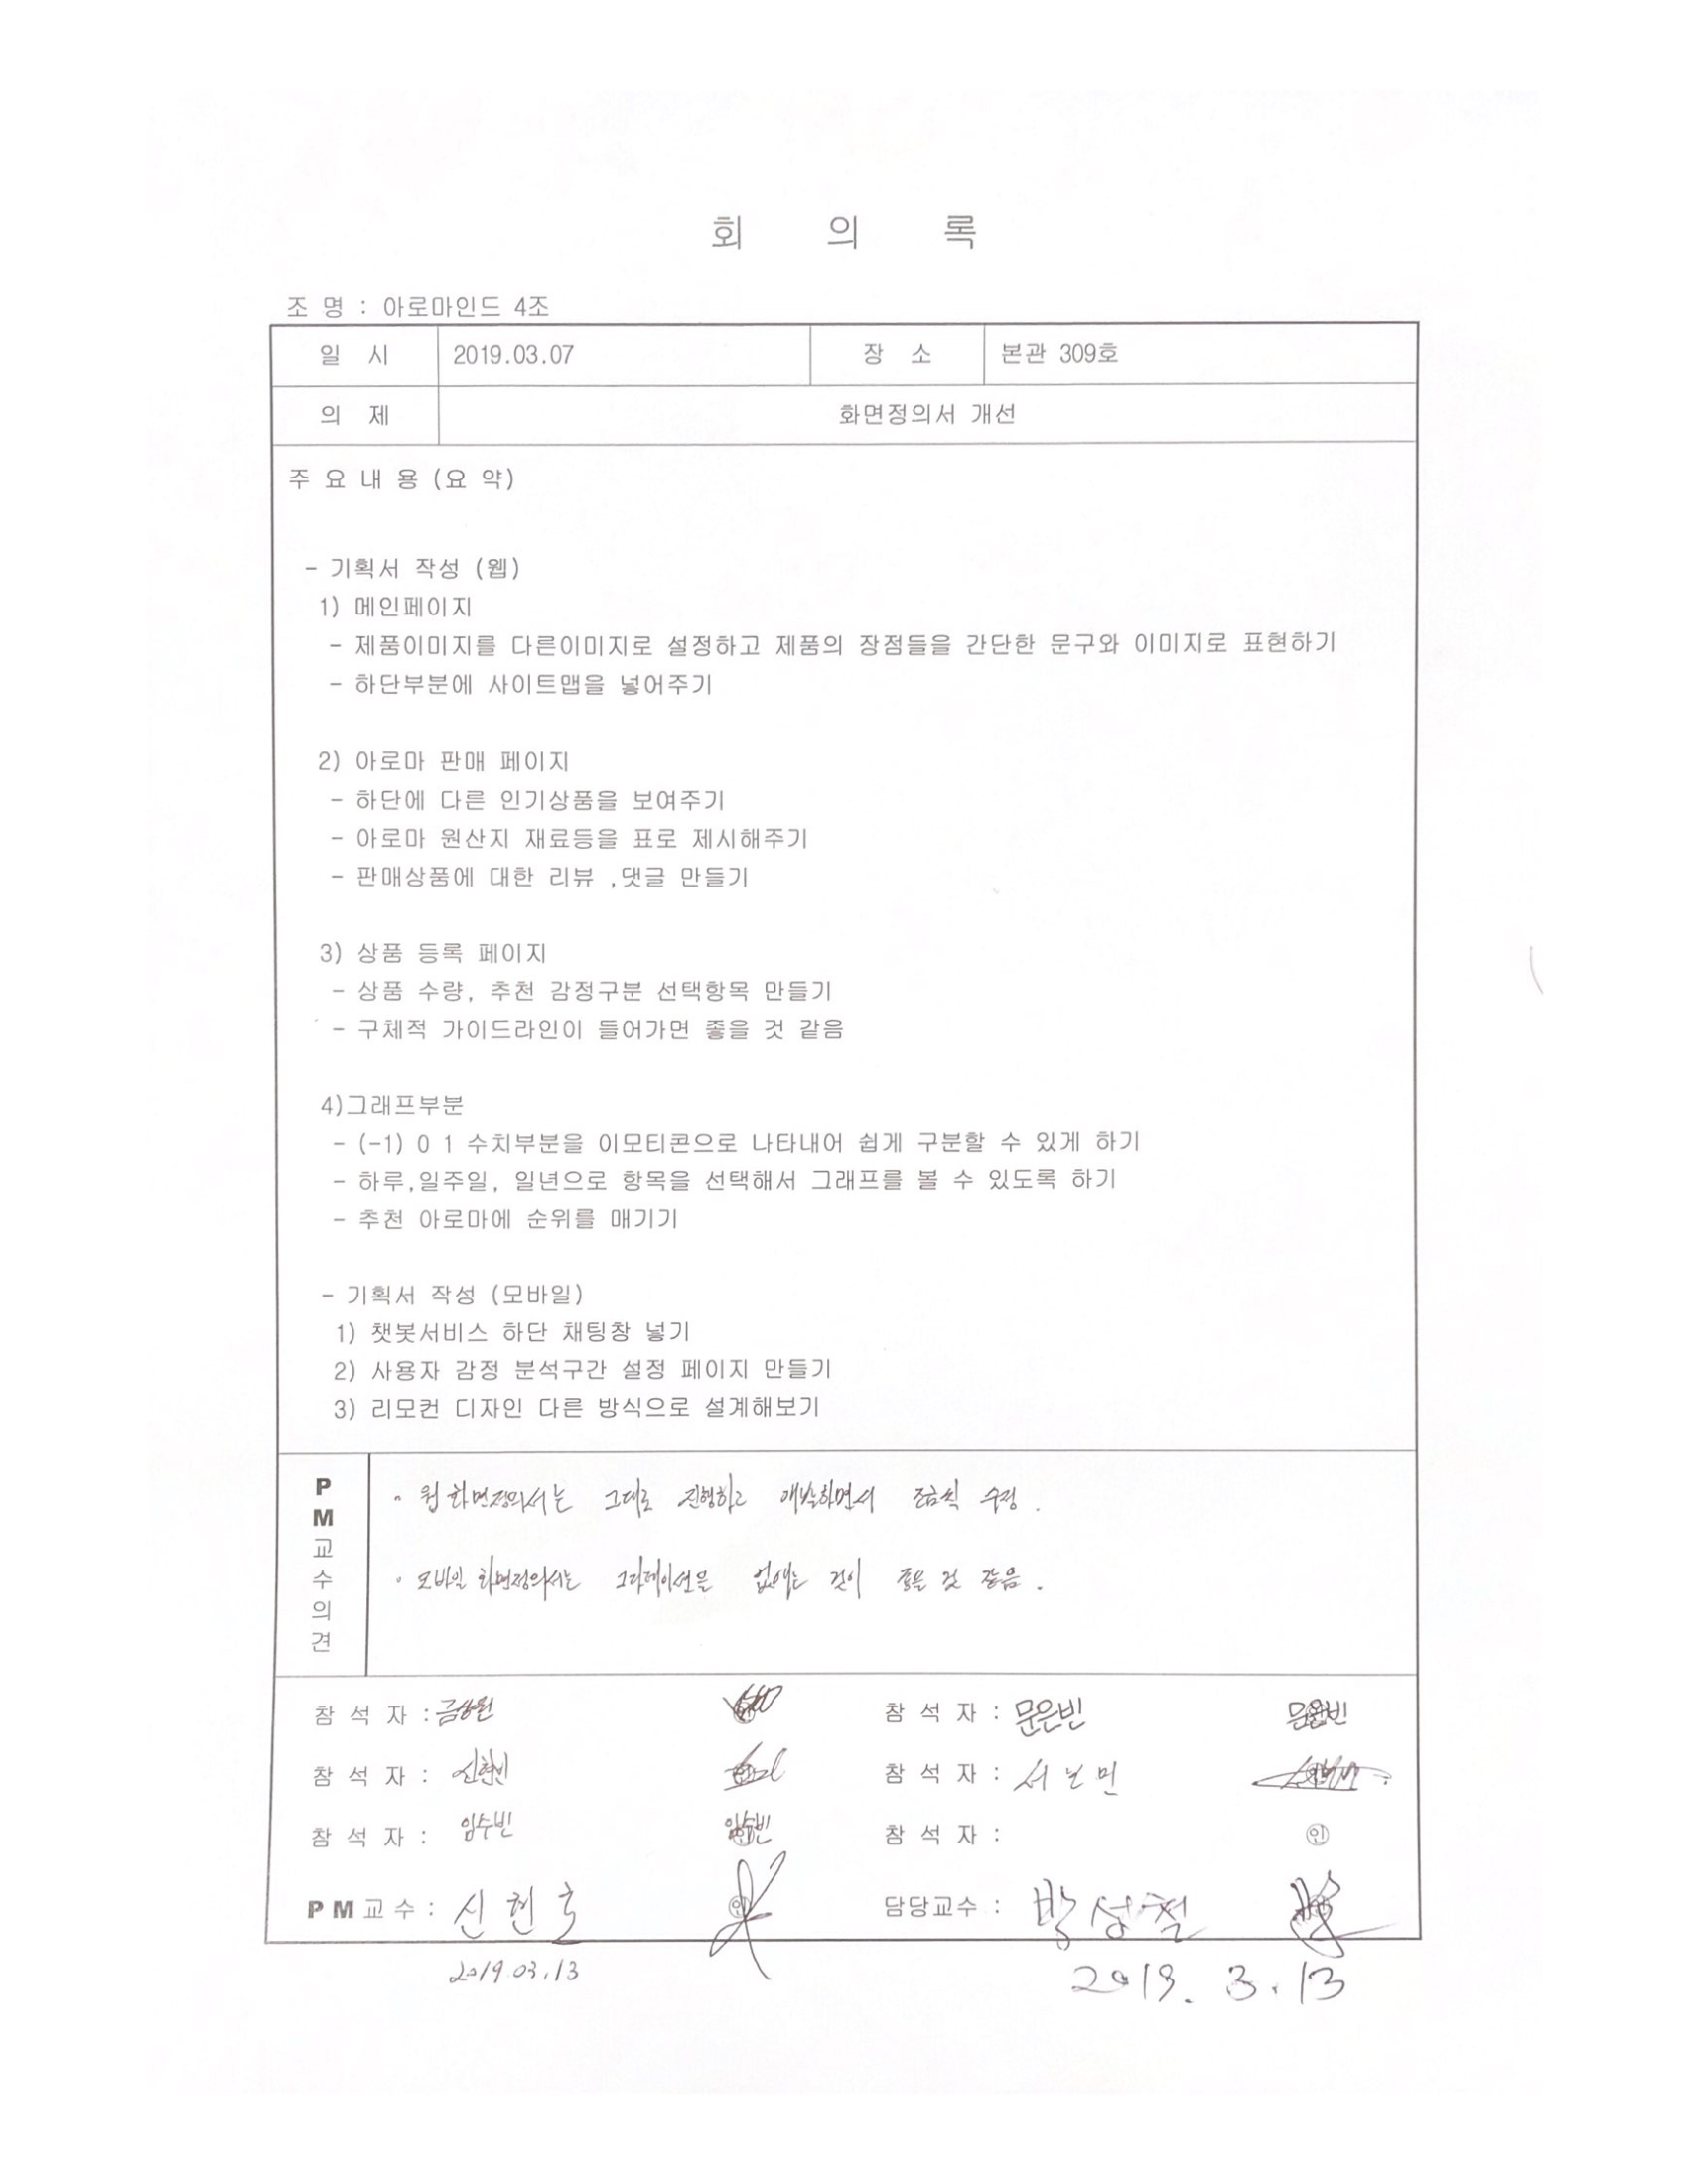 회 의 록
조 명 : 아로마인드 4조
일 시 2019.03.07 장 소 본관 309호
의 제 화면정의서 개선
주 요 내 용 (요 약)
- 기획서 작성 (웹)
1) 메인페이지
- 제품이미지를 다른이미지로 설정하고 제품의 장점들을 간단한 문구와 이미지로 표현하기
- 하단부분에 사이트맵을 넣어주기
2) 아로마 판매 페이지
- 하단에 다른 인기상품을 보여주기
- 아로마 원산지 재료등을 표로 제시해주기
- 판매상품에 대한 리뷰 ,댓글 만들기
3) 상품 등록 페이지
- 상품 수량, 추천 감정구분 선택항목 만들기
- 구체적 가이드라인이 들어가면 좋을 것 같음
4)그래프부분
- (-1) 0 1 수치부분을 이모티콘으로 나타내어 쉽게 구분할 수 있게 하기
- 하루,일주일, 일년으로 항목을 선택해서 그래프를 볼 수 있도록 하기
- 추천 아로마에 순위를 매기기
- 기획서 작성 (모바일)
1) 챗봇서비스 하단 채팅창 넣기
2) 사용자 감정 분석구간 설정 페이지 만들기
3) 리모컨 디자인 다른 방식으로 설계해보기
PM교수의견
· 웹 화면정의서는 그대로 진행하고 개발하면서 조금씩 수정.
· 모바일 화면정의서는 그라데이션을 없애는 것이 좋을 것 같음.
참 석 자 : 금상원 참 석 자 : 문은빈 문은빈
참 석 자 : 신현빈 참 석 자 :
참 석 자 : 임수빈 임수빈 참 석 자 : 인
PM교수 : 신현호 인 담당교수 : 박성철
2019.03.13 2019. 3. 13